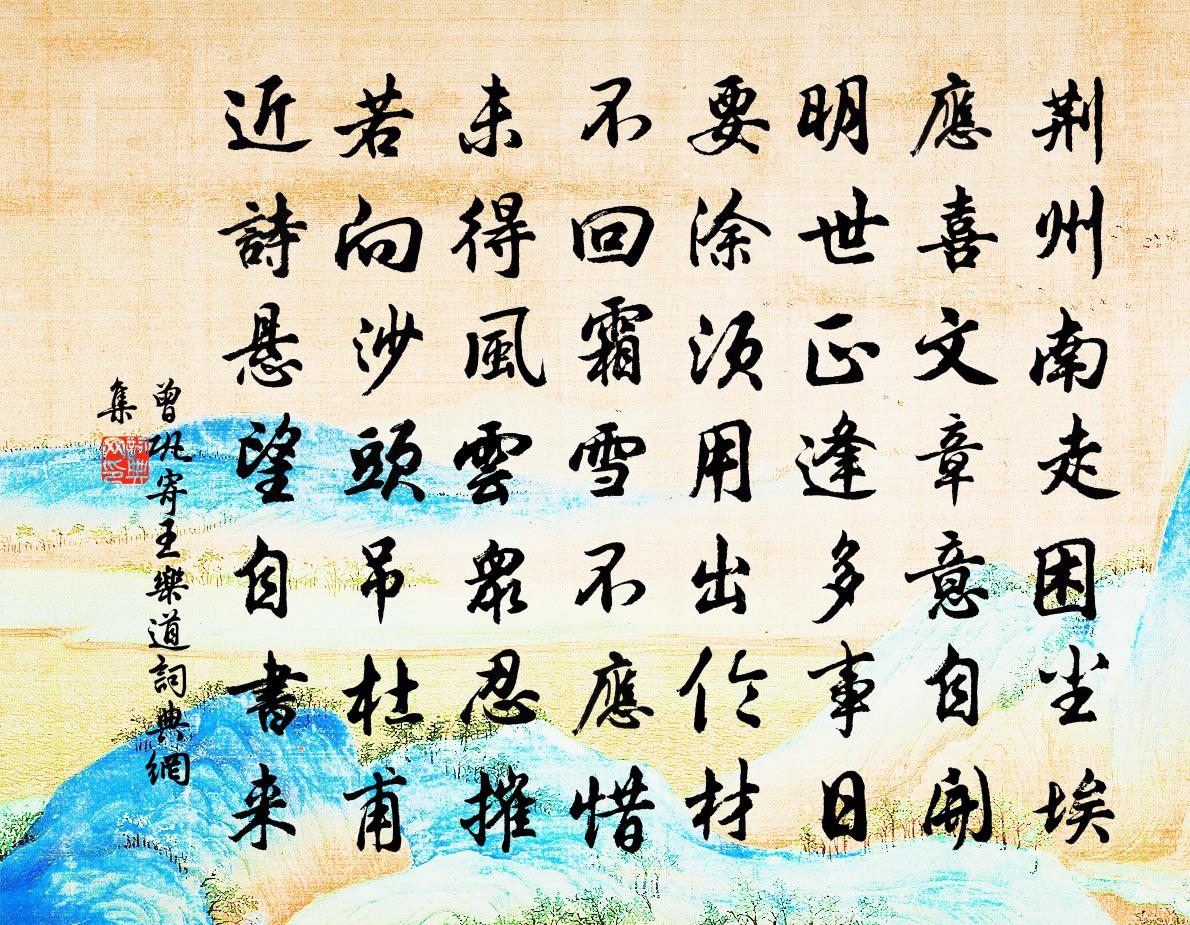 荆州南走困尘埃
應喜文章意自開
明世正逢多事日
要涂須用出伦材
不回霜雪不應惜
未得風雲眾忍摧
若向沙頭吊杜甫
近詩悬望自書来
曾巩寄王樂道詞典網
集